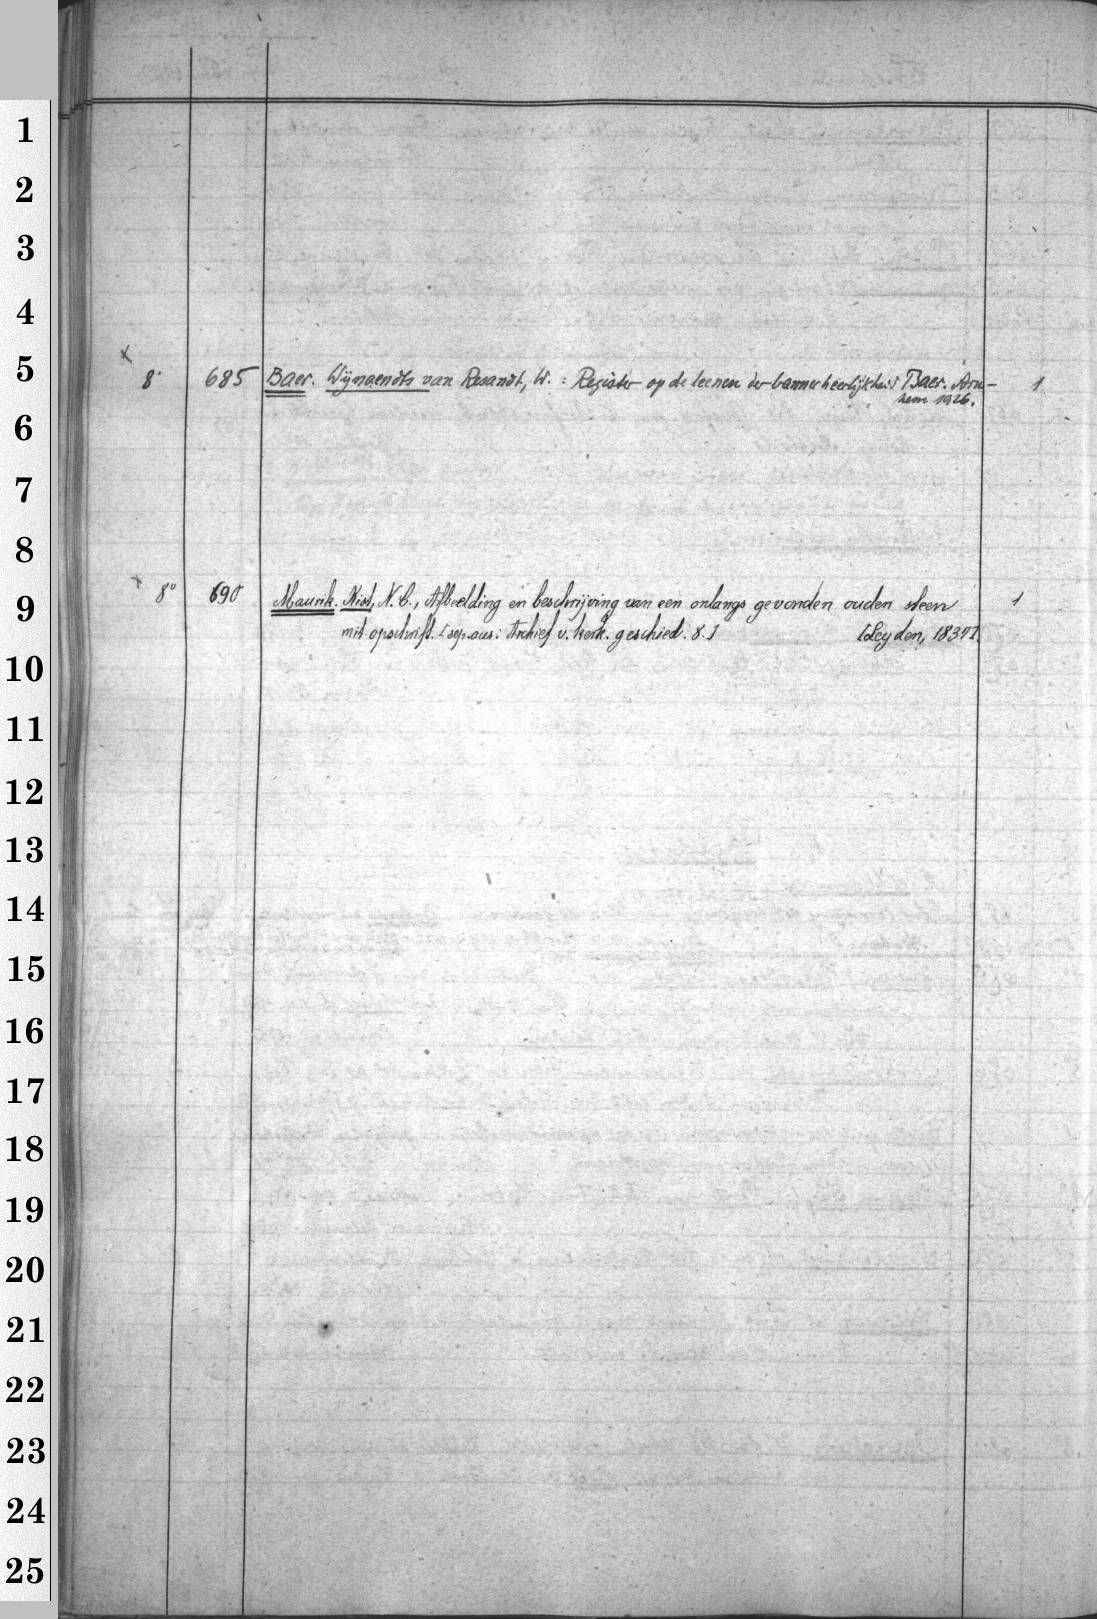 1
2
3
4
5
x 8° 685 Baer. Wijnaendts van Resandt, W. : Register op de leenen der bannerheerlijkheid Baer. Arn- 1
hem 1926.
6
7
8
9
x 8° 690 Maurik. Kist, N.C., Afbeelding en beschrijving van een onlangs gevonden ouden steen 1
mit opschrift. [sep. aus: Archief v. kerk. geschied. 8.] [Leyden, 1837]
10
11
12
13
14
15
16
17
18
19
20
21
22
23
24
25